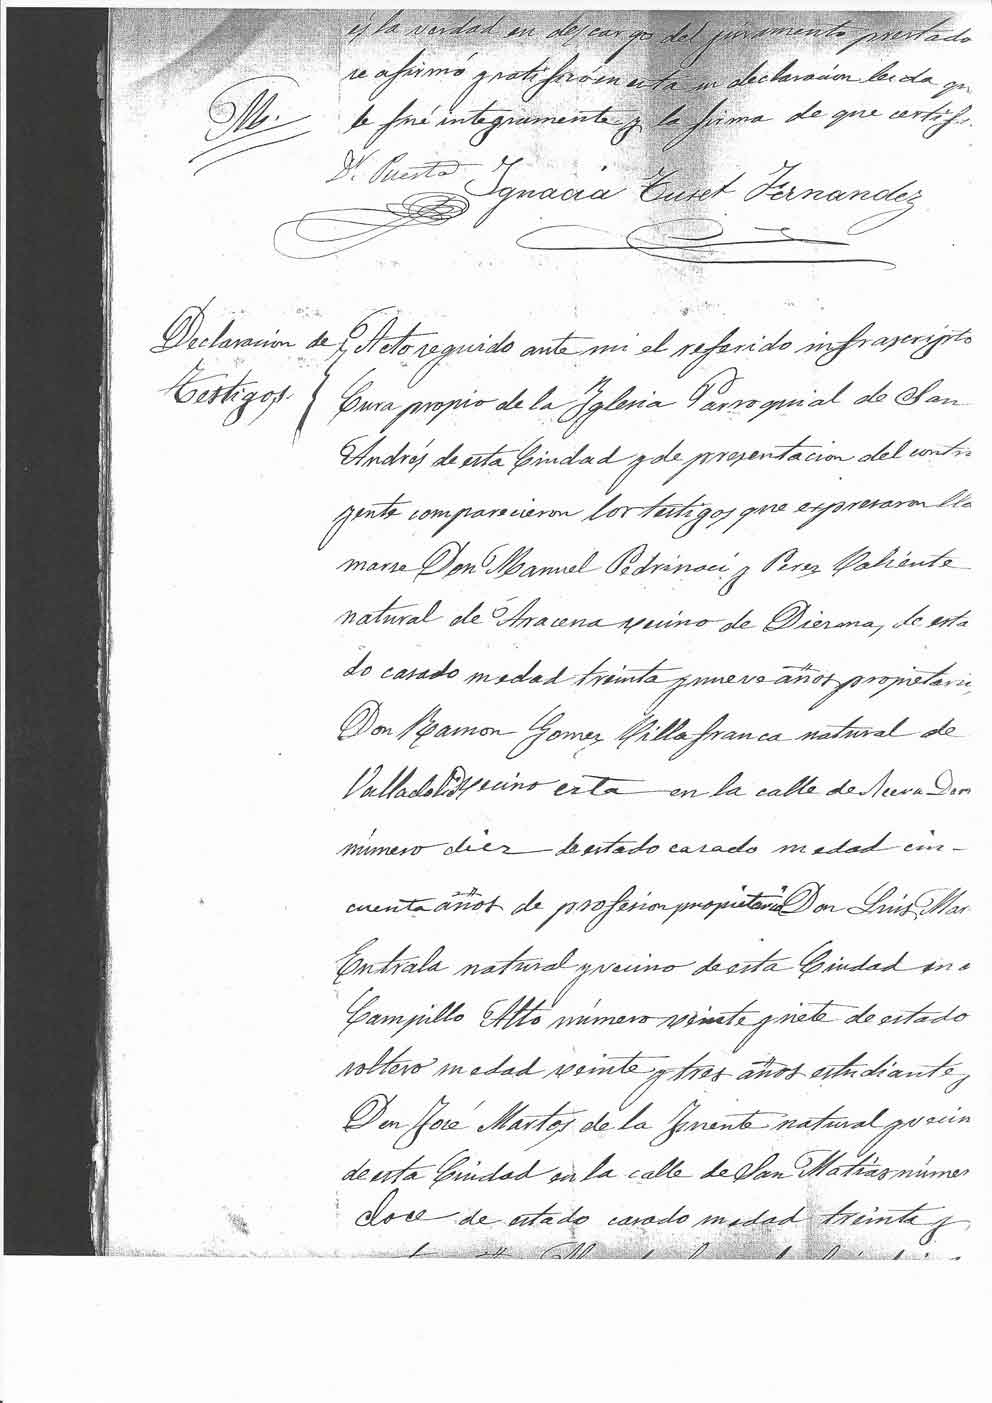 es la verdad en descargo del juramento prestado
se afirmó y ratificó en esta su declaración leida qu
le fué integramente y la firma de que certifi
Dr. Puerta Ignacia Tuset Fernandez
Declaración de
Testigos.
Acto seguido ante mi el referido infrascripto
Cura propio de la Yglesia Parroquial de San
Andrés de esta Ciudad y de presentacion del contra
yente comparecieron los testigos que expresaron lla
marse Don Manuel Pedrinaci y Perez Valiente
natural de Aracena vecino de Diezma, de esta
do casado su edad treinta y nueve años propietario,
Don Ramon Gomez Villafranca natural de
Valladolid vecino esta en la calle de
número diez de estado casado su edad cin-
cuenta años de profesion propietario Don Luis Mar
Entrala natural y vecino de esta Ciudad en e
Campillo Alto número veinte y siete de estado
soltero su edad veinte y tres años estudiante y
Don José Martos de la Fuente natural y vecin
de esta Ciudad en la calle de San Matias númer
doce de estado casado su edad treinta y